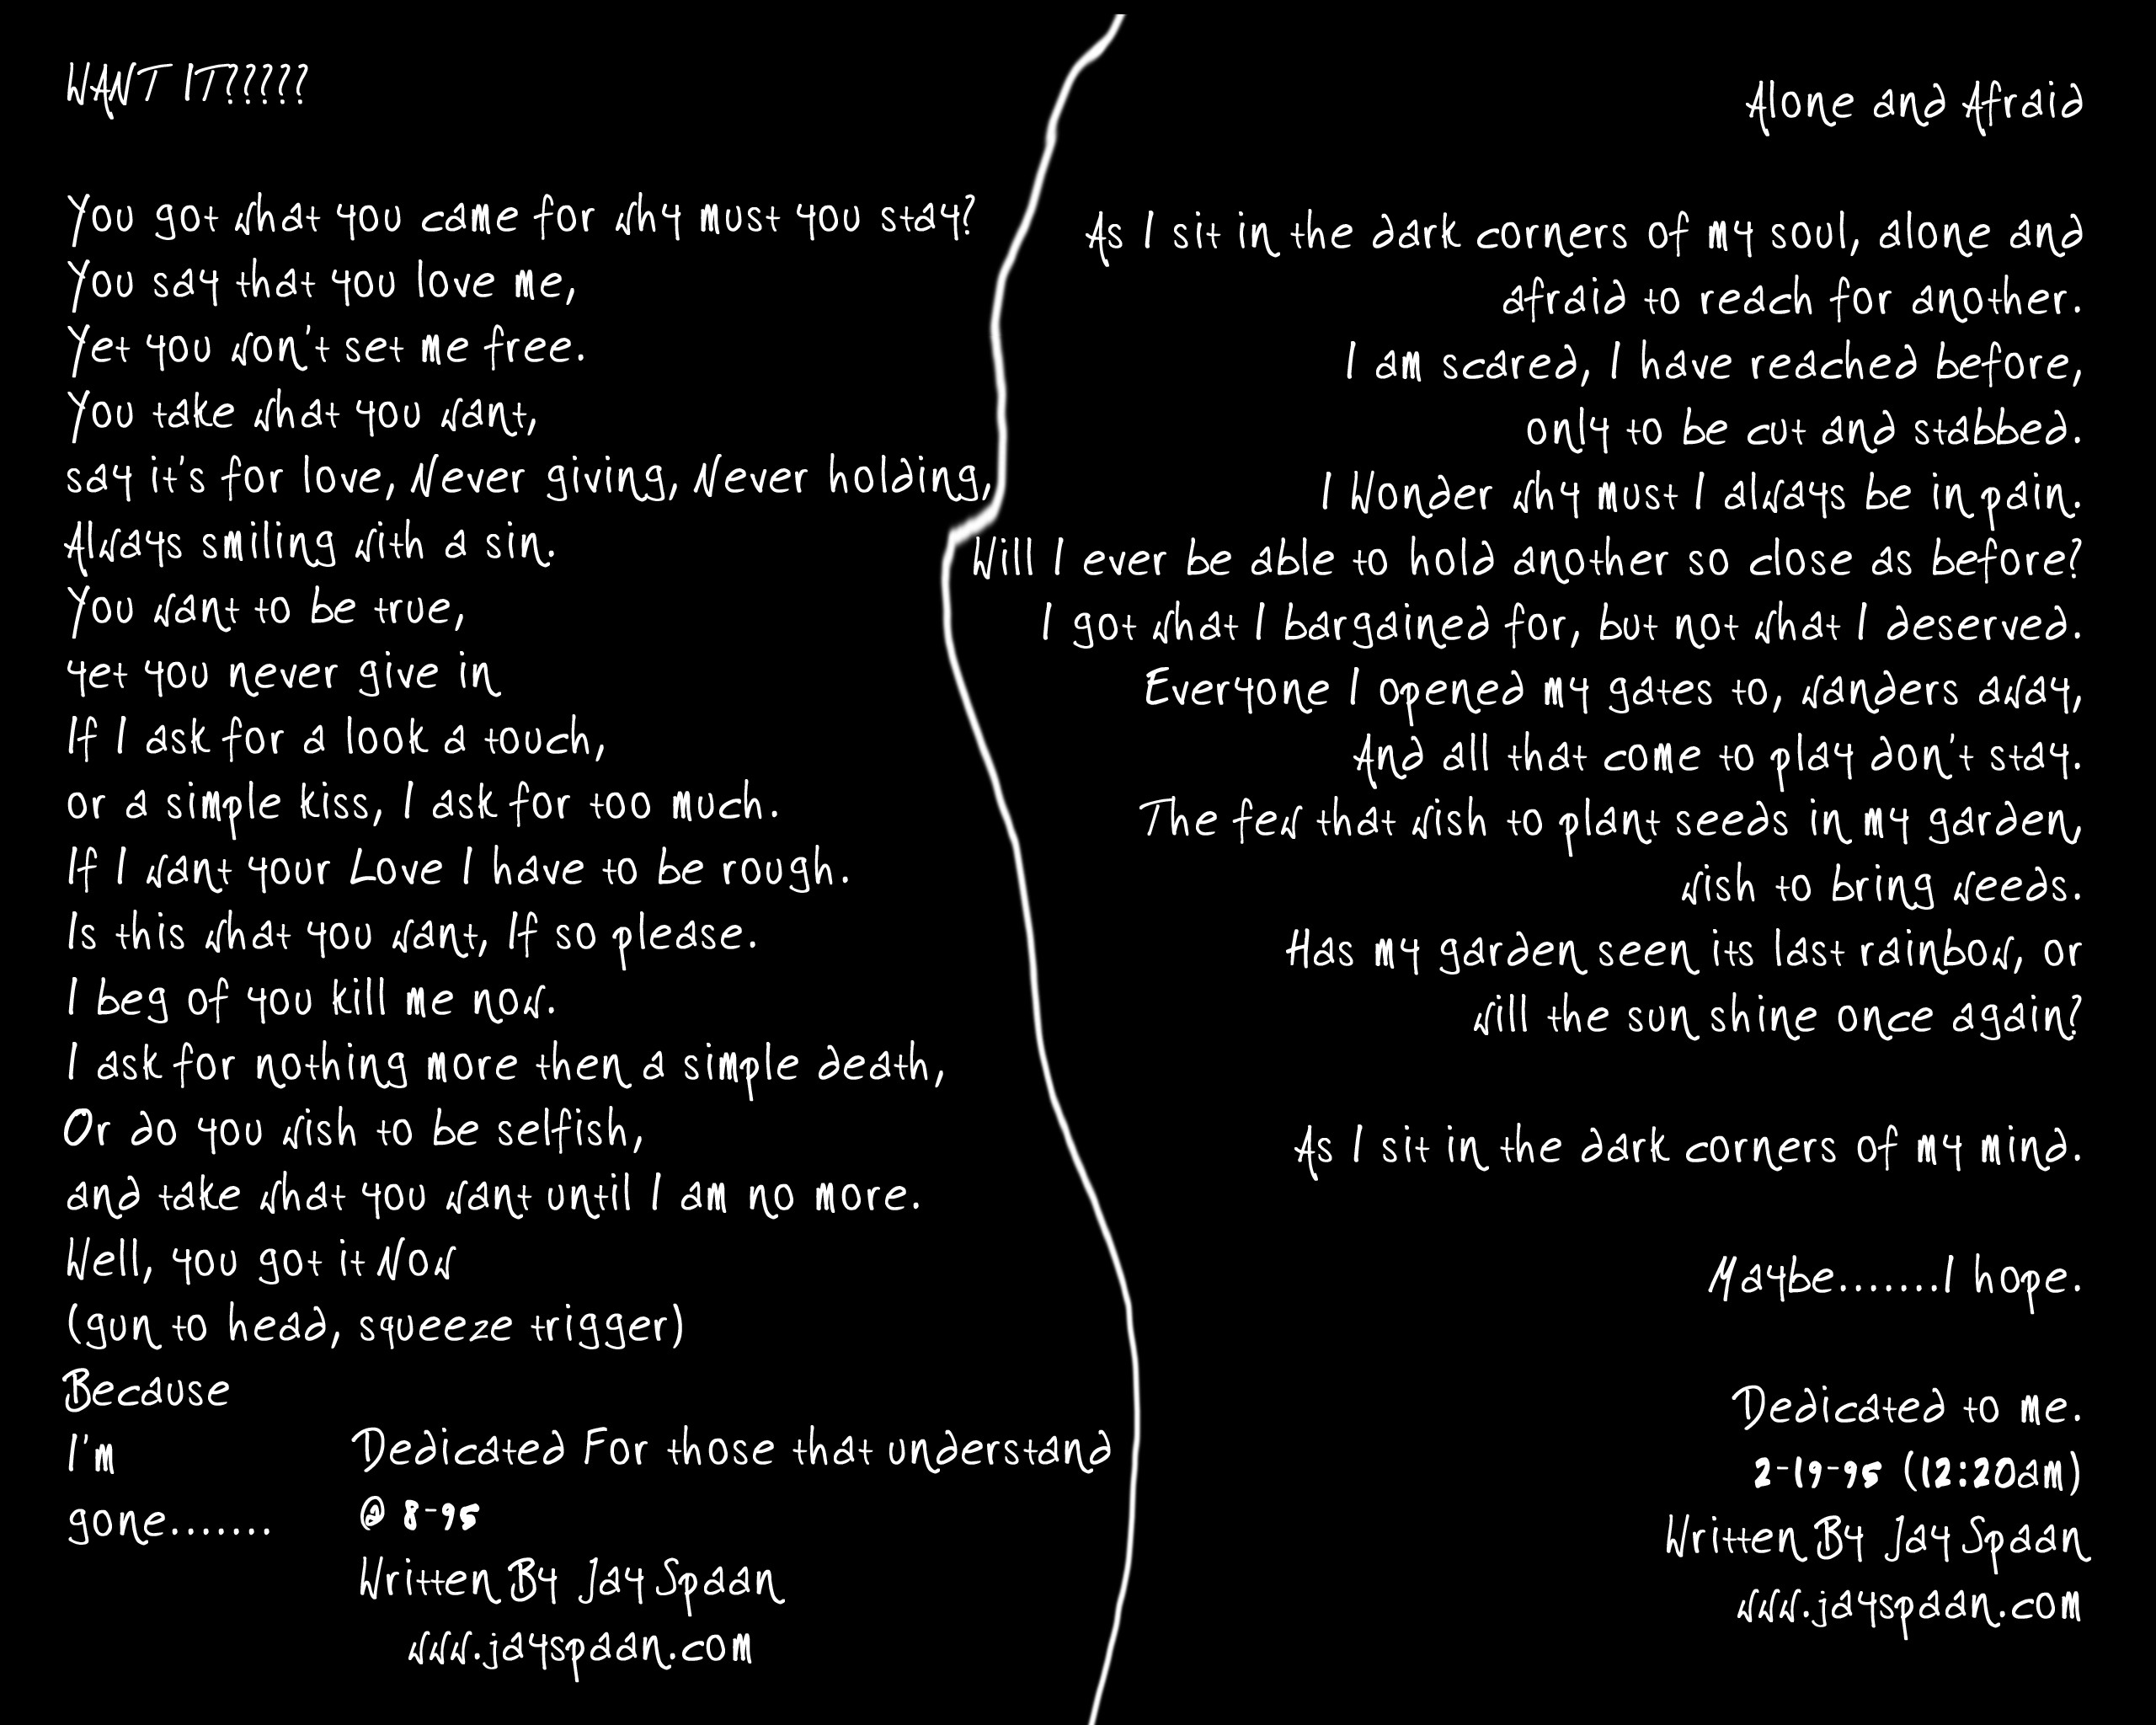 WANT IT?????
You got what you came for why must you stay?
You say that you love me,
Yet you won't set me free.
You take what you want,
say it's for love, Never giving, Never holding,
Always smiling with a sin.
You want to be true,
yet you never give in
If I ask for a look a touch,
or a simple kiss, I ask for too much.
If I want your Love I have to be rough.
Is this what you want, If so please.
I beg of you kill me now.
I ask for nothing more then a simple death,
Or do you wish to be selfish,
and take what you want until I am no more.
Well, you got it Now
(gun to head, squeeze trigger)
Because
I'm
gone.......
Dedicated For those that understand
@ 8-95
Written By Jay Spaan
www.jayspaan.com
Alone and Afraid
As I sit in the dark corners of my soul, alone and
afraid to reach for another.
I am scared, I have reached before,
only to be cut and stabbed.
I Wonder why must I always be in pain.
Will I ever be able to hold another so close as before?
I got what I bargained for, but not what I deserved.
Everyone I opened my gates to, wanders away,
And all that come to play don't stay.
The few that wish to plant seeds in my garden,
wish to bring weeds.
Has my garden seen its last rainbow, or
will the sun shine once again?
As I sit in the dark corners of my mind.
Maybe.......I hope.
Dedicated to me.
2-19-95 (12:20am)
Written By Jay Spaan
www.jayspaan.com